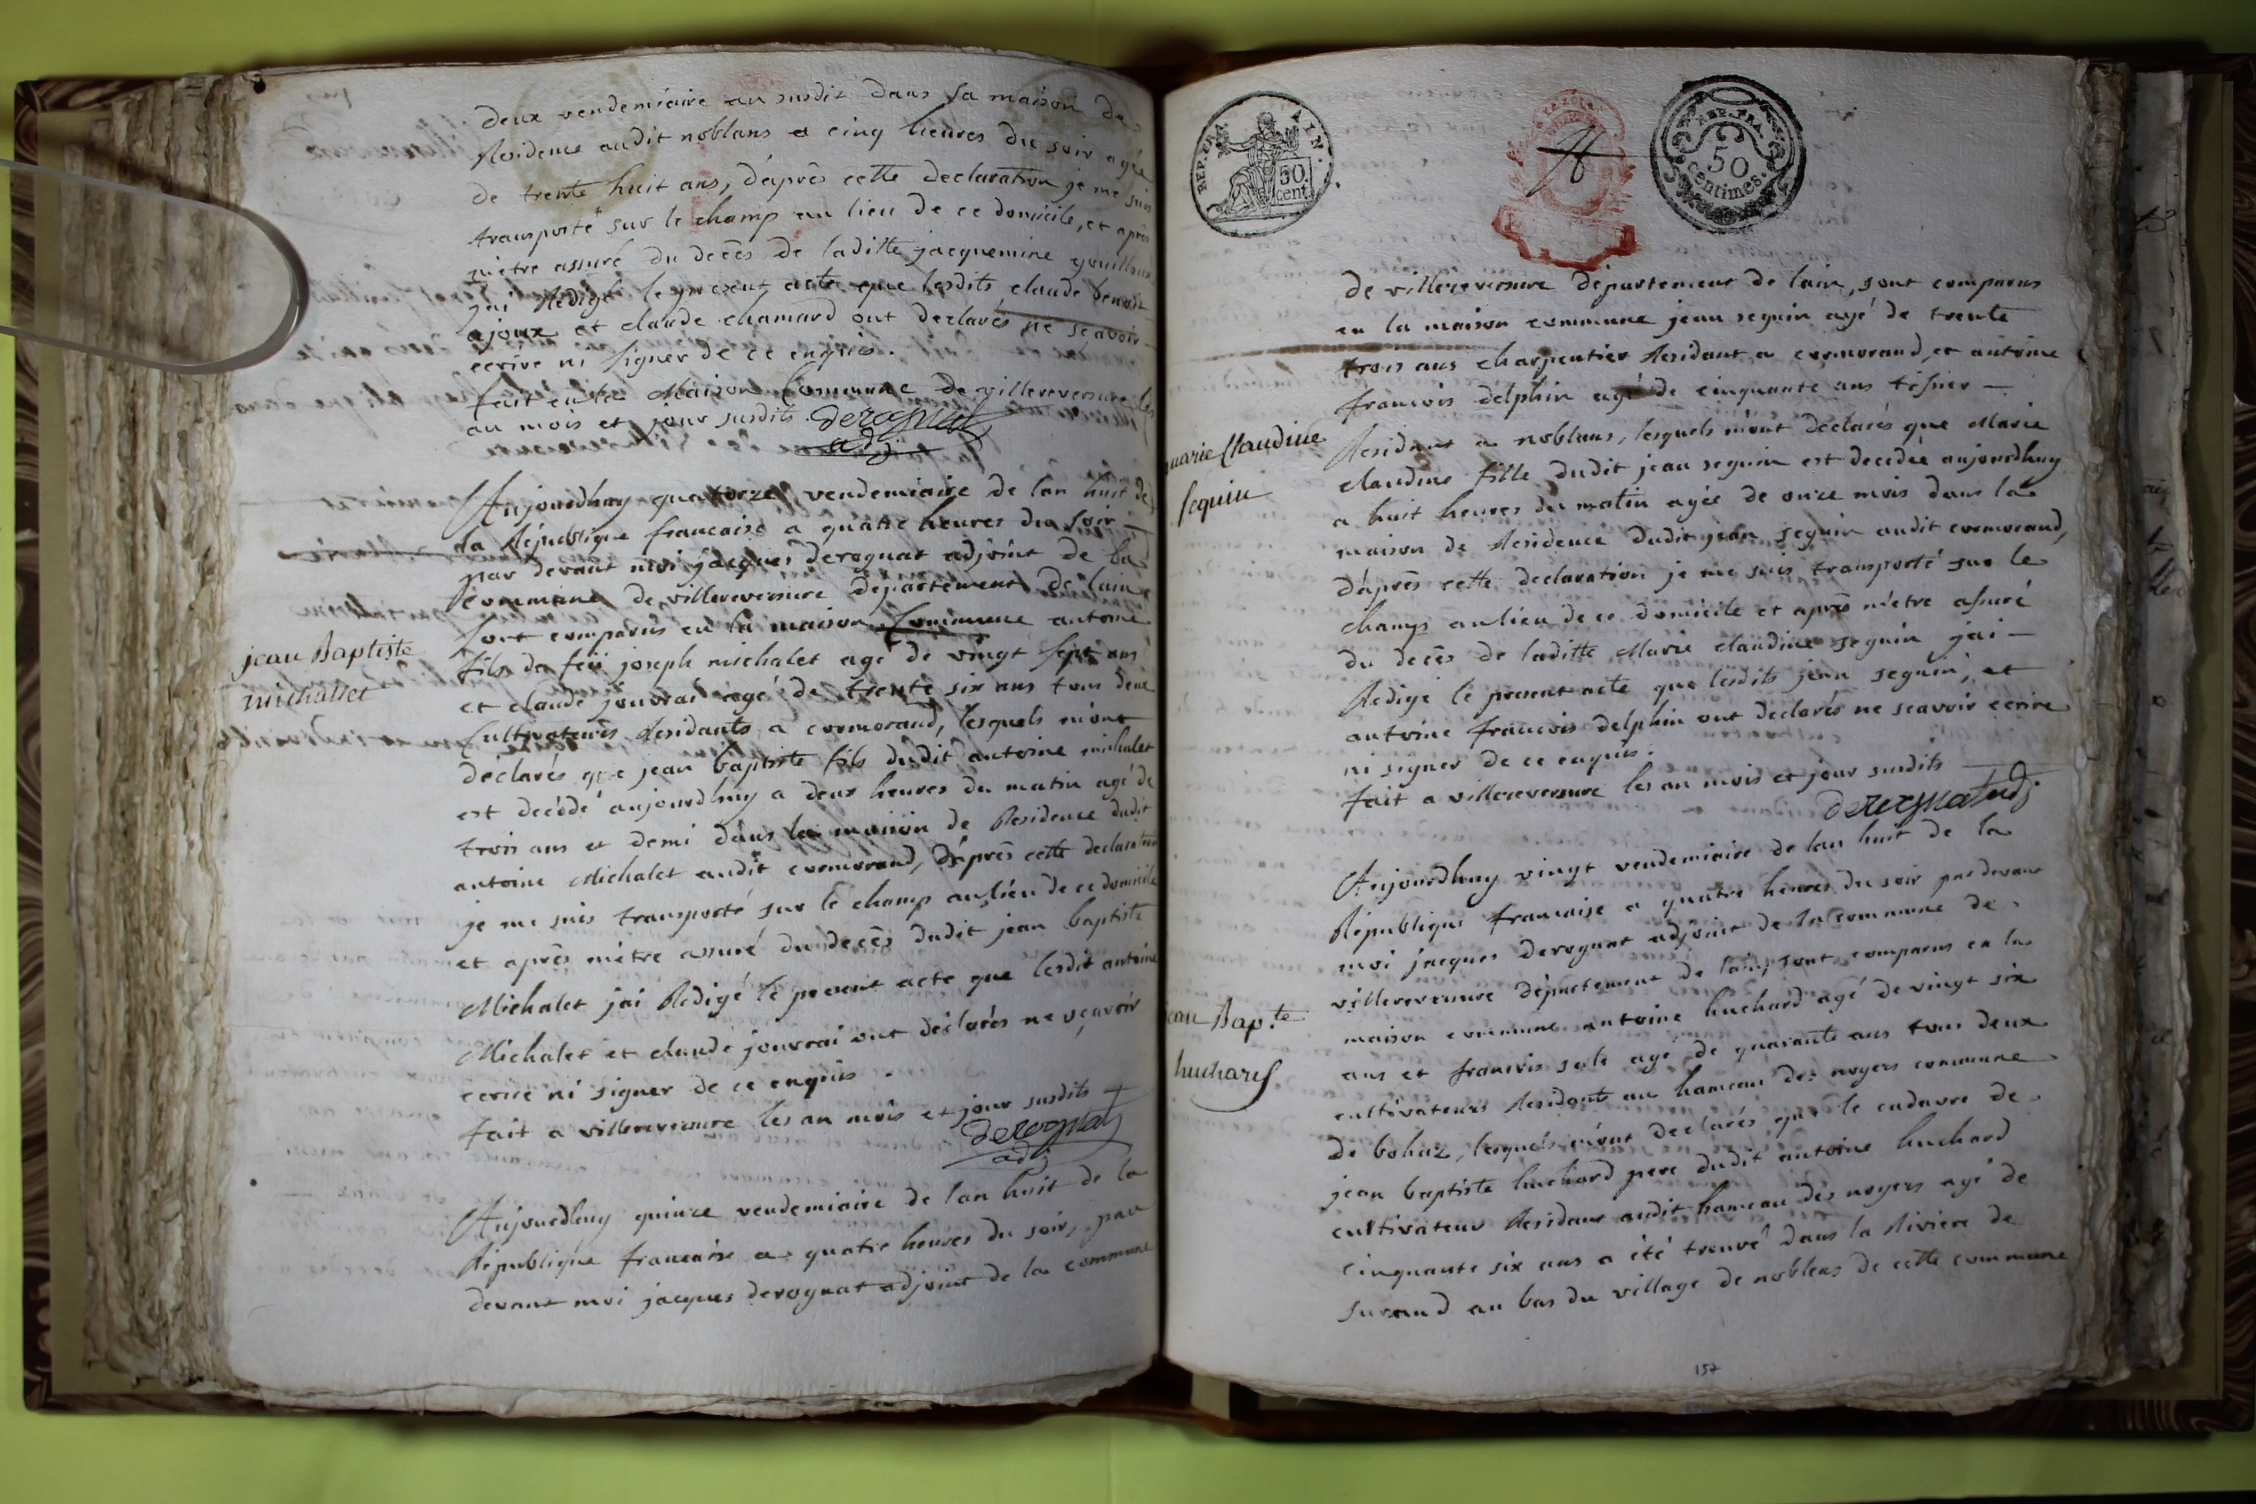 deux vendemiaire an susdit dans sa maison de
Residence audit noblans a cinq heures du soir agée
de trente huit ans, d'après cette declaration je me suis
transporté sur le champ au lieu de ce domicile, et après
m'etre assuré du decès de laditte jacquemine
jai Redigé le present acte que lesdits claude benoit
ajoux et claude chamard ont declarés ne sçavoir
ecrire ni signer de ce enquis.
fait en la Maison Commune de villereversure les
an mois et jour susdits. derognat
adj
Aujourdhuy quatorze vendemiaire de lan huit de
la Republique francaise a quatre heures du soir
par devant moi jacques derognat adjoint de la
commune de villereversure departement de lain
sont comparus en la maison Commune antoine
jean Baptiste
michallet
fils de feu joseph michalet agé de vingt sept ans
et claude jouvrai agé de trente six ans tous deux
Cultivateurs Residants a cormorand, lesquels m'ont
déclarés que jean baptiste fils dudit antoine michalet
est decédé aujourdhuy a deux heures du matin agé de
trois ans et demi dans la maison de Residence dudit
antoine Michalet audit cormorand, d'après cette declaration
je me suis transporté sur le champ au lieu de ce domicile
et après m'etre assuré du decès dudit jean baptiste
Michalet jai Redigé le present acte que lesdit antoine
Michalet et claude jouvrai ont declarés ne sçavoir
ecrire ni signer de ce enquis.
fait a villereversure les an mois et jour susdits
derognat
adj
Aujourdhuy quinze vendemiaire de lan huit de la
Republique francaise a quatre heures du soir, par
devant moi jacques derognat adjoint de la commune
REP. FRA. AIN.
50. cent.
REP. FRA.
50
centimes.
de villereversure département de lain, sont comparus
en la maison commune jean seguin agé de trente
trois ans charpentier Residant a cormorand, et antoine
francois delphin agé de cinquante ans tissier
marie Claudine
seguin
Residant a noblans, lesquels m'ont déclarés que Marie
claudine fille dudit jean seguin est decédée aujourdhuy
a huit heures du matin agée de onze mois dans la
maison de Residence dudit jean seguin audit cormorand,
d'après cette declaration je me suis transporté sur le
champs au lieu de ce domicile et après m'etre assuré
du decès de laditte Marie claudine seguin jai
Redigé le present acte que lesdits jean seguin, et
antoine francois delphin ont declarés ne scavoir ecrire
ni signer de ce enquis.
fait a villereversure les an mois et jour susdits
derognat adj
Aujourdhuy vingt vendemiaire de lan huit de la
Republique francaise a quatre heures du soir par devant
moi jacques derognat adjoint de la commune de
villereversure département de lain, sont comparus en la
jean Bap.te
huchard
maison commune antoine huchard agé de vingt six
ans et francois sale agé de quarante ans tous deux
cultivateurs Residants au hameau des noyers commune
de bohaz, lesquels m'ont declarés que le cadavre de
jean baptiste huchard pere dudit antoine huchard
cultivateur Residant audit hameau des noyers agé de
cinquante six ans a été trouvé dans la Riviere de
surand au bas du village de noblens de cette commune
157